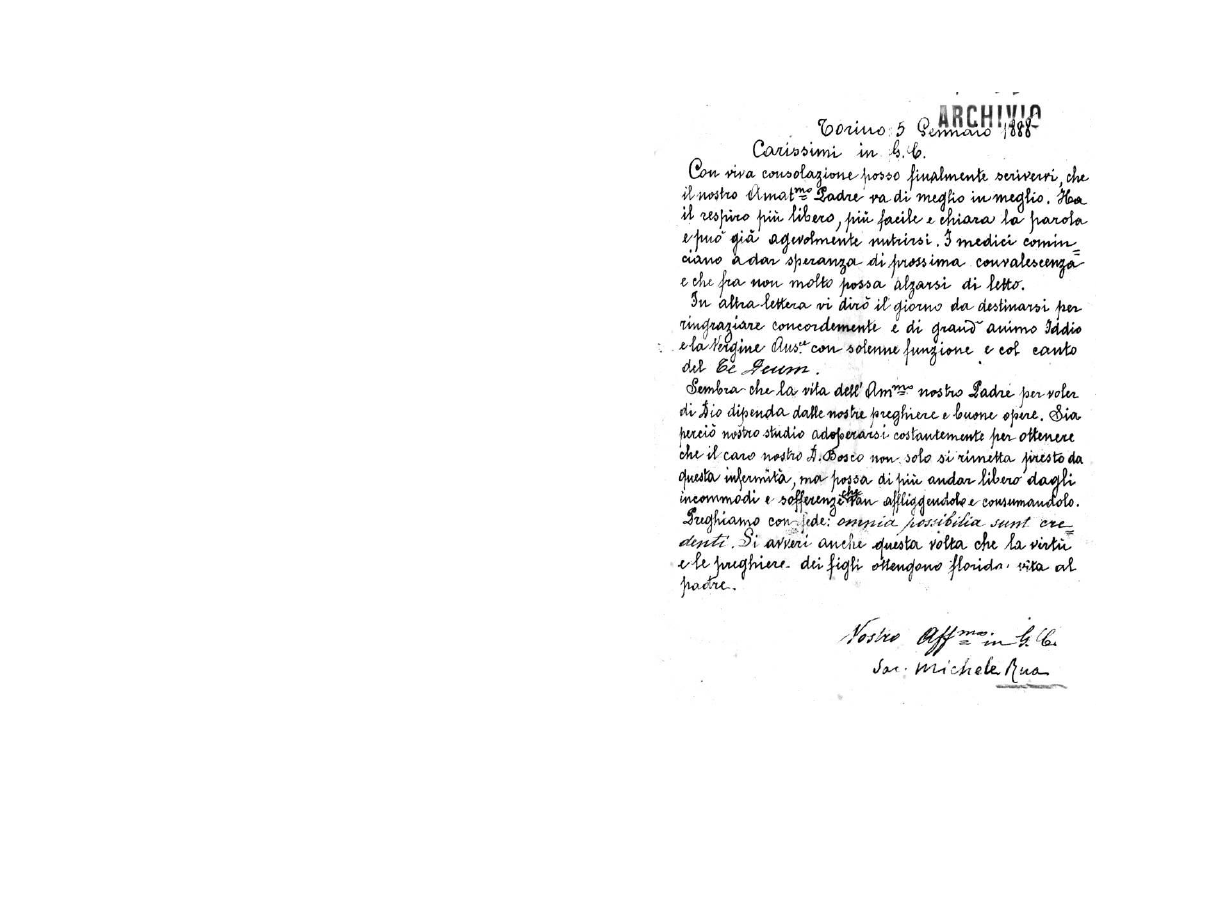 ARCHIVIO
Torino 5 Gennaro 1888
Carissimi in G. C.
Con viva consolazione posso finalmente scrivervi, che
il nostro Amatmo Padre va di meglio in meglio. Ha
il respiro più libero, più facile e chiara la parola
e può già agevolmente nutrirsi. I medici comin=
ciano a dar speranza di prossima convalescenza
e che fra non molto possa alzarsi di letto.
In altra lettera vi dirò il giorno da destinarsi per
ringraziare concordemente e di grand' animo Iddio
e la Vergine Ausce con solenne funzione e col canto
del Te Deum.
Sembra che la vita dell' Ammo nostro Padre per voler
di Dio dipenda dalle nostre preghiere e buone opere. Sia
perciò nostro studio adoperarsi costantemente per ottenere
che il caro nostro D. Bosco non solo si rimetta presto da
questa infermità, ma possa di più andar libero dagli
incommodi e sofferenze che van affliggendolo e consumandolo.
Preghiamo con fede: omnia possibilia sunt cre=
denti. Si avveri anche questa volta che la virtù
e le preghiere dei figli ottengono florida vita al
padre.
Vostro Affmo in G. C.
Sac. Michele Rua